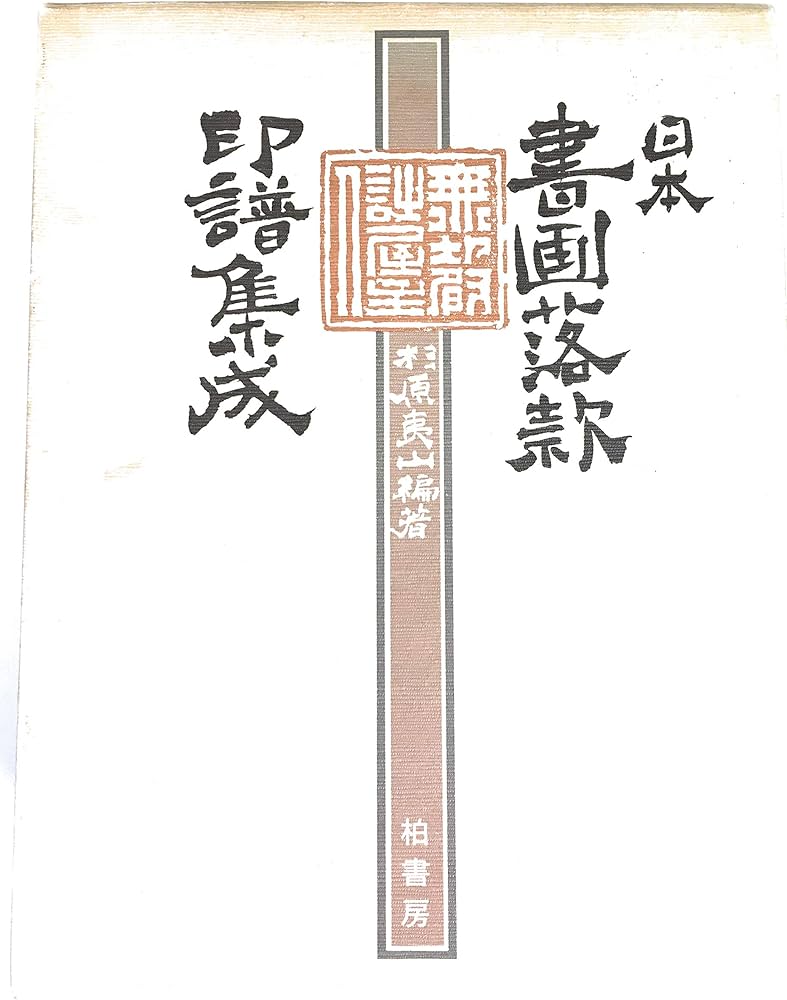 日本
書画落款
印譜集成
杉原夷山編著
柏書房